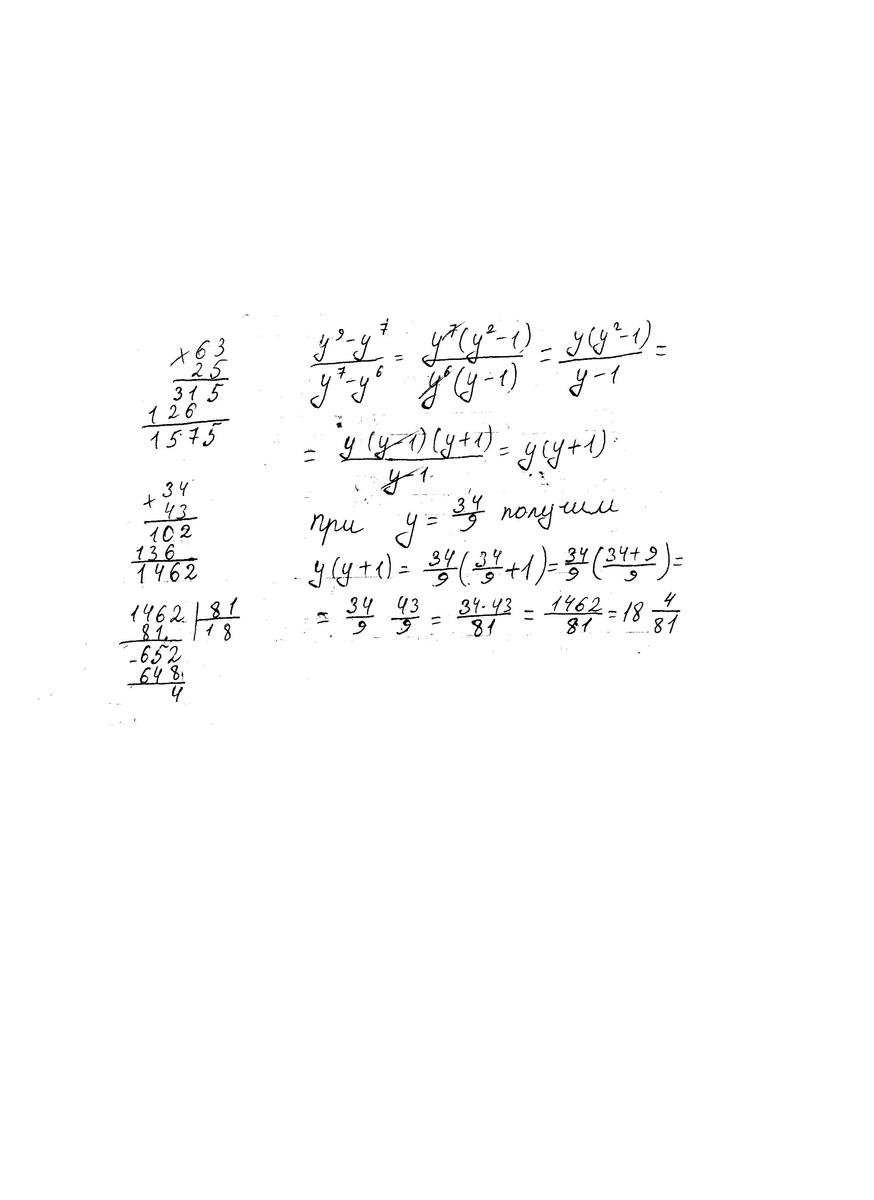 × 63
25
315
126
1575
× 34
43
102
136
1462
1462 | 81
81 | 18
-652
648
4
(y⁹-y⁷)/(y⁷-y⁶) = (y⁷(y²-1))/(y⁶(y-1)) = (y(y²-1))/(y-1) =
= (y(y-1)(y+1))/(y-1) = y(y+1)
при y = 34/9 получим
y(y+1) = 34/9 (34/9 + 1) = 34/9 ((34+9)/9) =
= 34/9 43/9 = (34·43)/81 = 1462/81 = 18 4/81